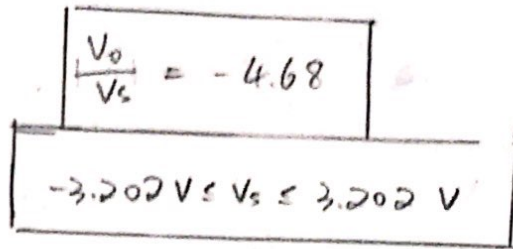 Vo/Vs = -4.68
-3.202 V ≤ Vs ≤ 3.202 V